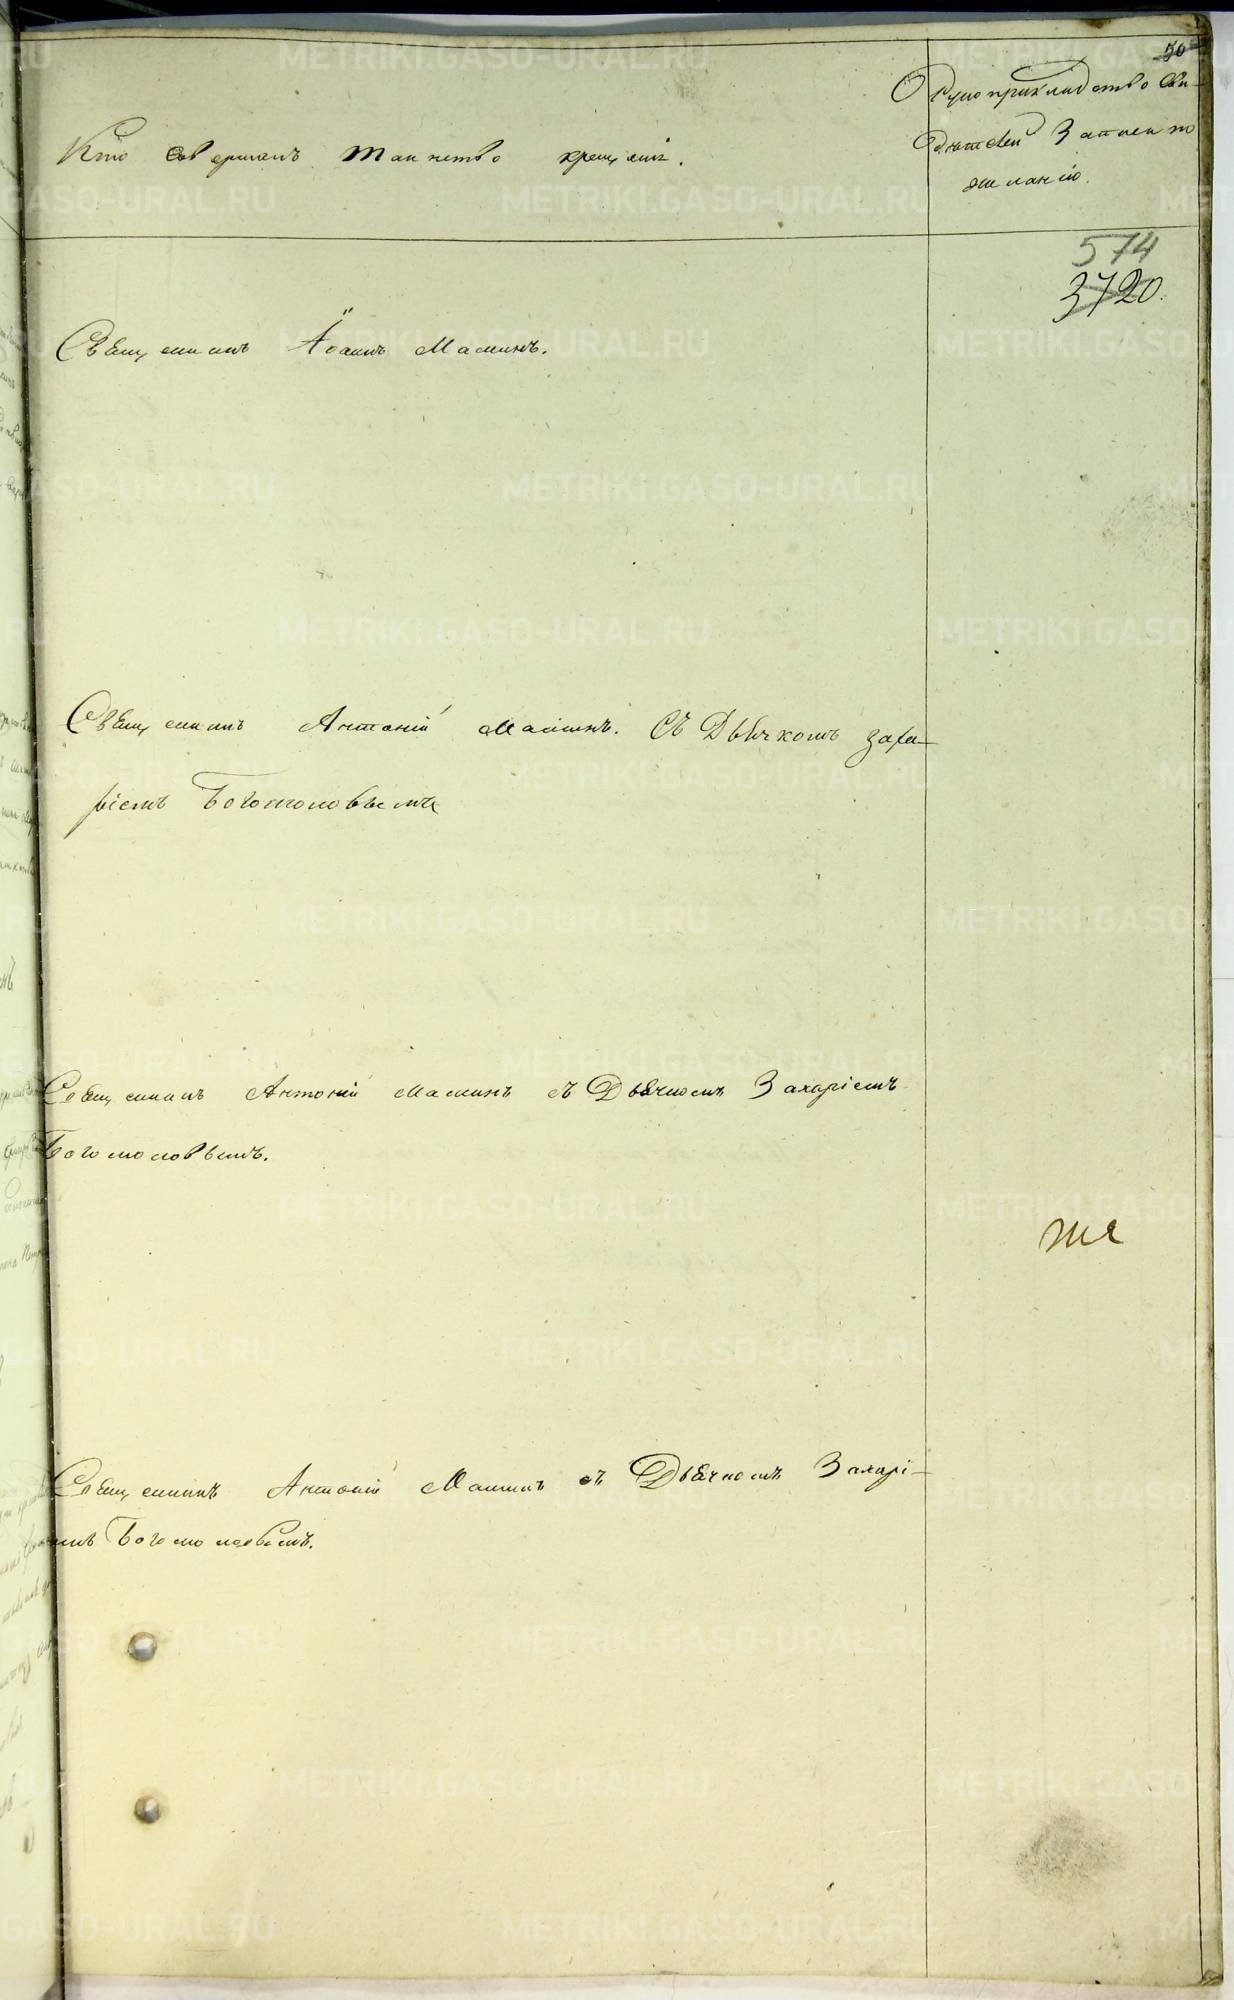 50
Кто совершалъ таинство крещенія.
Рукоприкладство сви-
дѣтелей записи по
желанію.
574
3720.
Священникъ Іоаннъ Маминъ.
Священникъ Антоній Маминъ. Съ Дьячкомъ Заха-
ріемъ Богомоловымъ
Священникъ Антоній Маминъ съ Дьячкомъ Захаріемъ
Богомоловымъ.
Священникъ Антоній Маминъ съ Дьячкомъ Захарі-
емъ Богомоловымъ.
METRIKI.GASO-URAL.RU